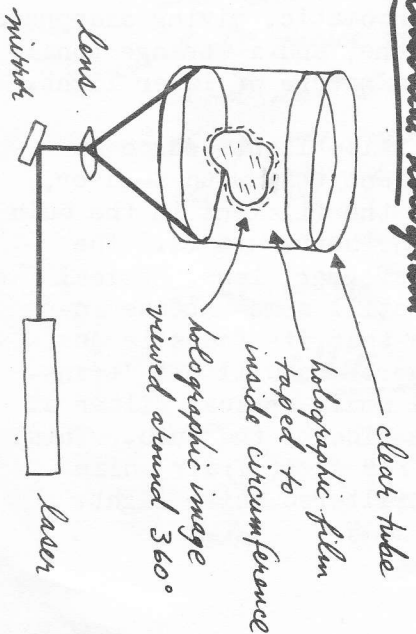 hologram
clear tube
holographic film
taped to
inside circumference
holographic image
viewed around 360°
lens
mirror
laser